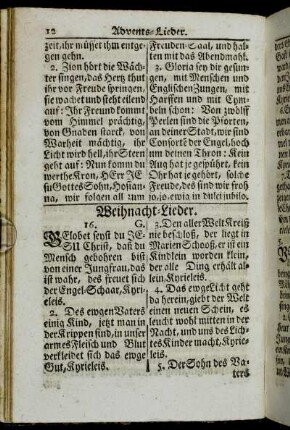 12 Advents-Lieder.
zeit, ihr müsset ihm entge-
gen gehn.
2. Zion hört die Wäch-
ter singen, das Hertz thut
ihr vor Freude springen,
sie wachet und steht eilend
auf: Ihr Freund kommt
vom Himmel prächtig,
von Gnaden starck, von
Warheit mächtig, ihr
Licht wird hell, ihr Stern
geht auf: Nun komm du
werthe Kron, HErr JE-
su Gottes Sohn, Hosian-
na, wir folgen all zum
Freuden-Saal, und hal-
ten mit das Abendmahl.
3. Gloria sey dir gesun-
gen, mit Menschen und
Englischen Zungen, mit
Harffen und mit Cym-
beln schon: Von zwölff
Perlen sind die Pforten,
an deiner Stadt, wir sind
Consorte der Engel, hoch
um deinen Thron: Kein
Aug hat je gespührt, kein
Ohr hat je gehört, solche
Freude, des sind wir froh
jo, jo, ewig in dulci jubilo.
Weihnacht-Lieder.
16. G.
GElobet seyst du JE-
SU Christ, daß du
Mensch gebohren bist
von einer Jungfrau, das
ist wahr, des freuet sich
der Engel-Schaar, Kyrie-
leis.
2. Des ewgen Vaters
einig Kind, jetzt man in
der Krippen find, in unser
armes Fleisch und Blut
verkleidet sich das ewge
Gut, Kyrieleis.
3. Den aller Welt Kreiß
nie beschloß, der liegt in
Marien Schooß, er ist ein
Kindlein worden klein,
der alle Ding erhält al-
lein. Kyrieleis.
4. Das ewge Licht geht
da herein, giebt der Welt
einen neuen Schein, es
leucht wohl mitten in der
Nacht, und uns des Lich-
tes Kinder macht, Kyrie-
leis.
5. Der Sohn des Va-
ters